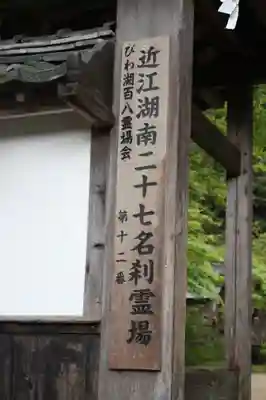 近江湖南二十七名刹霊場
びわ湖百八霊場会
第十二番